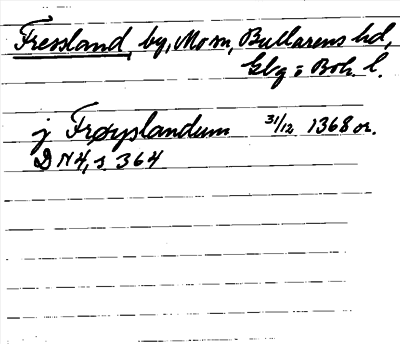 Fressland, by, Mo sn, Bullarens hd,
Gbg o Boh. l.
j Frøyslandum 31/12 1368 or.
DN 4, s. 364